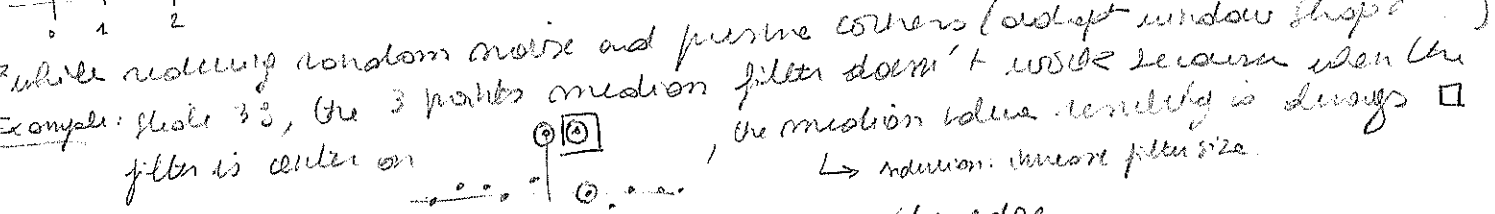 0 1 2
while reducing random noise and preserve corners (adapt window shape )
Example: slide 33, the 3 points median filter doesn't work because when the
filter is center on , the median value resulting is always □
↳ solution: increase filter size.
the edge